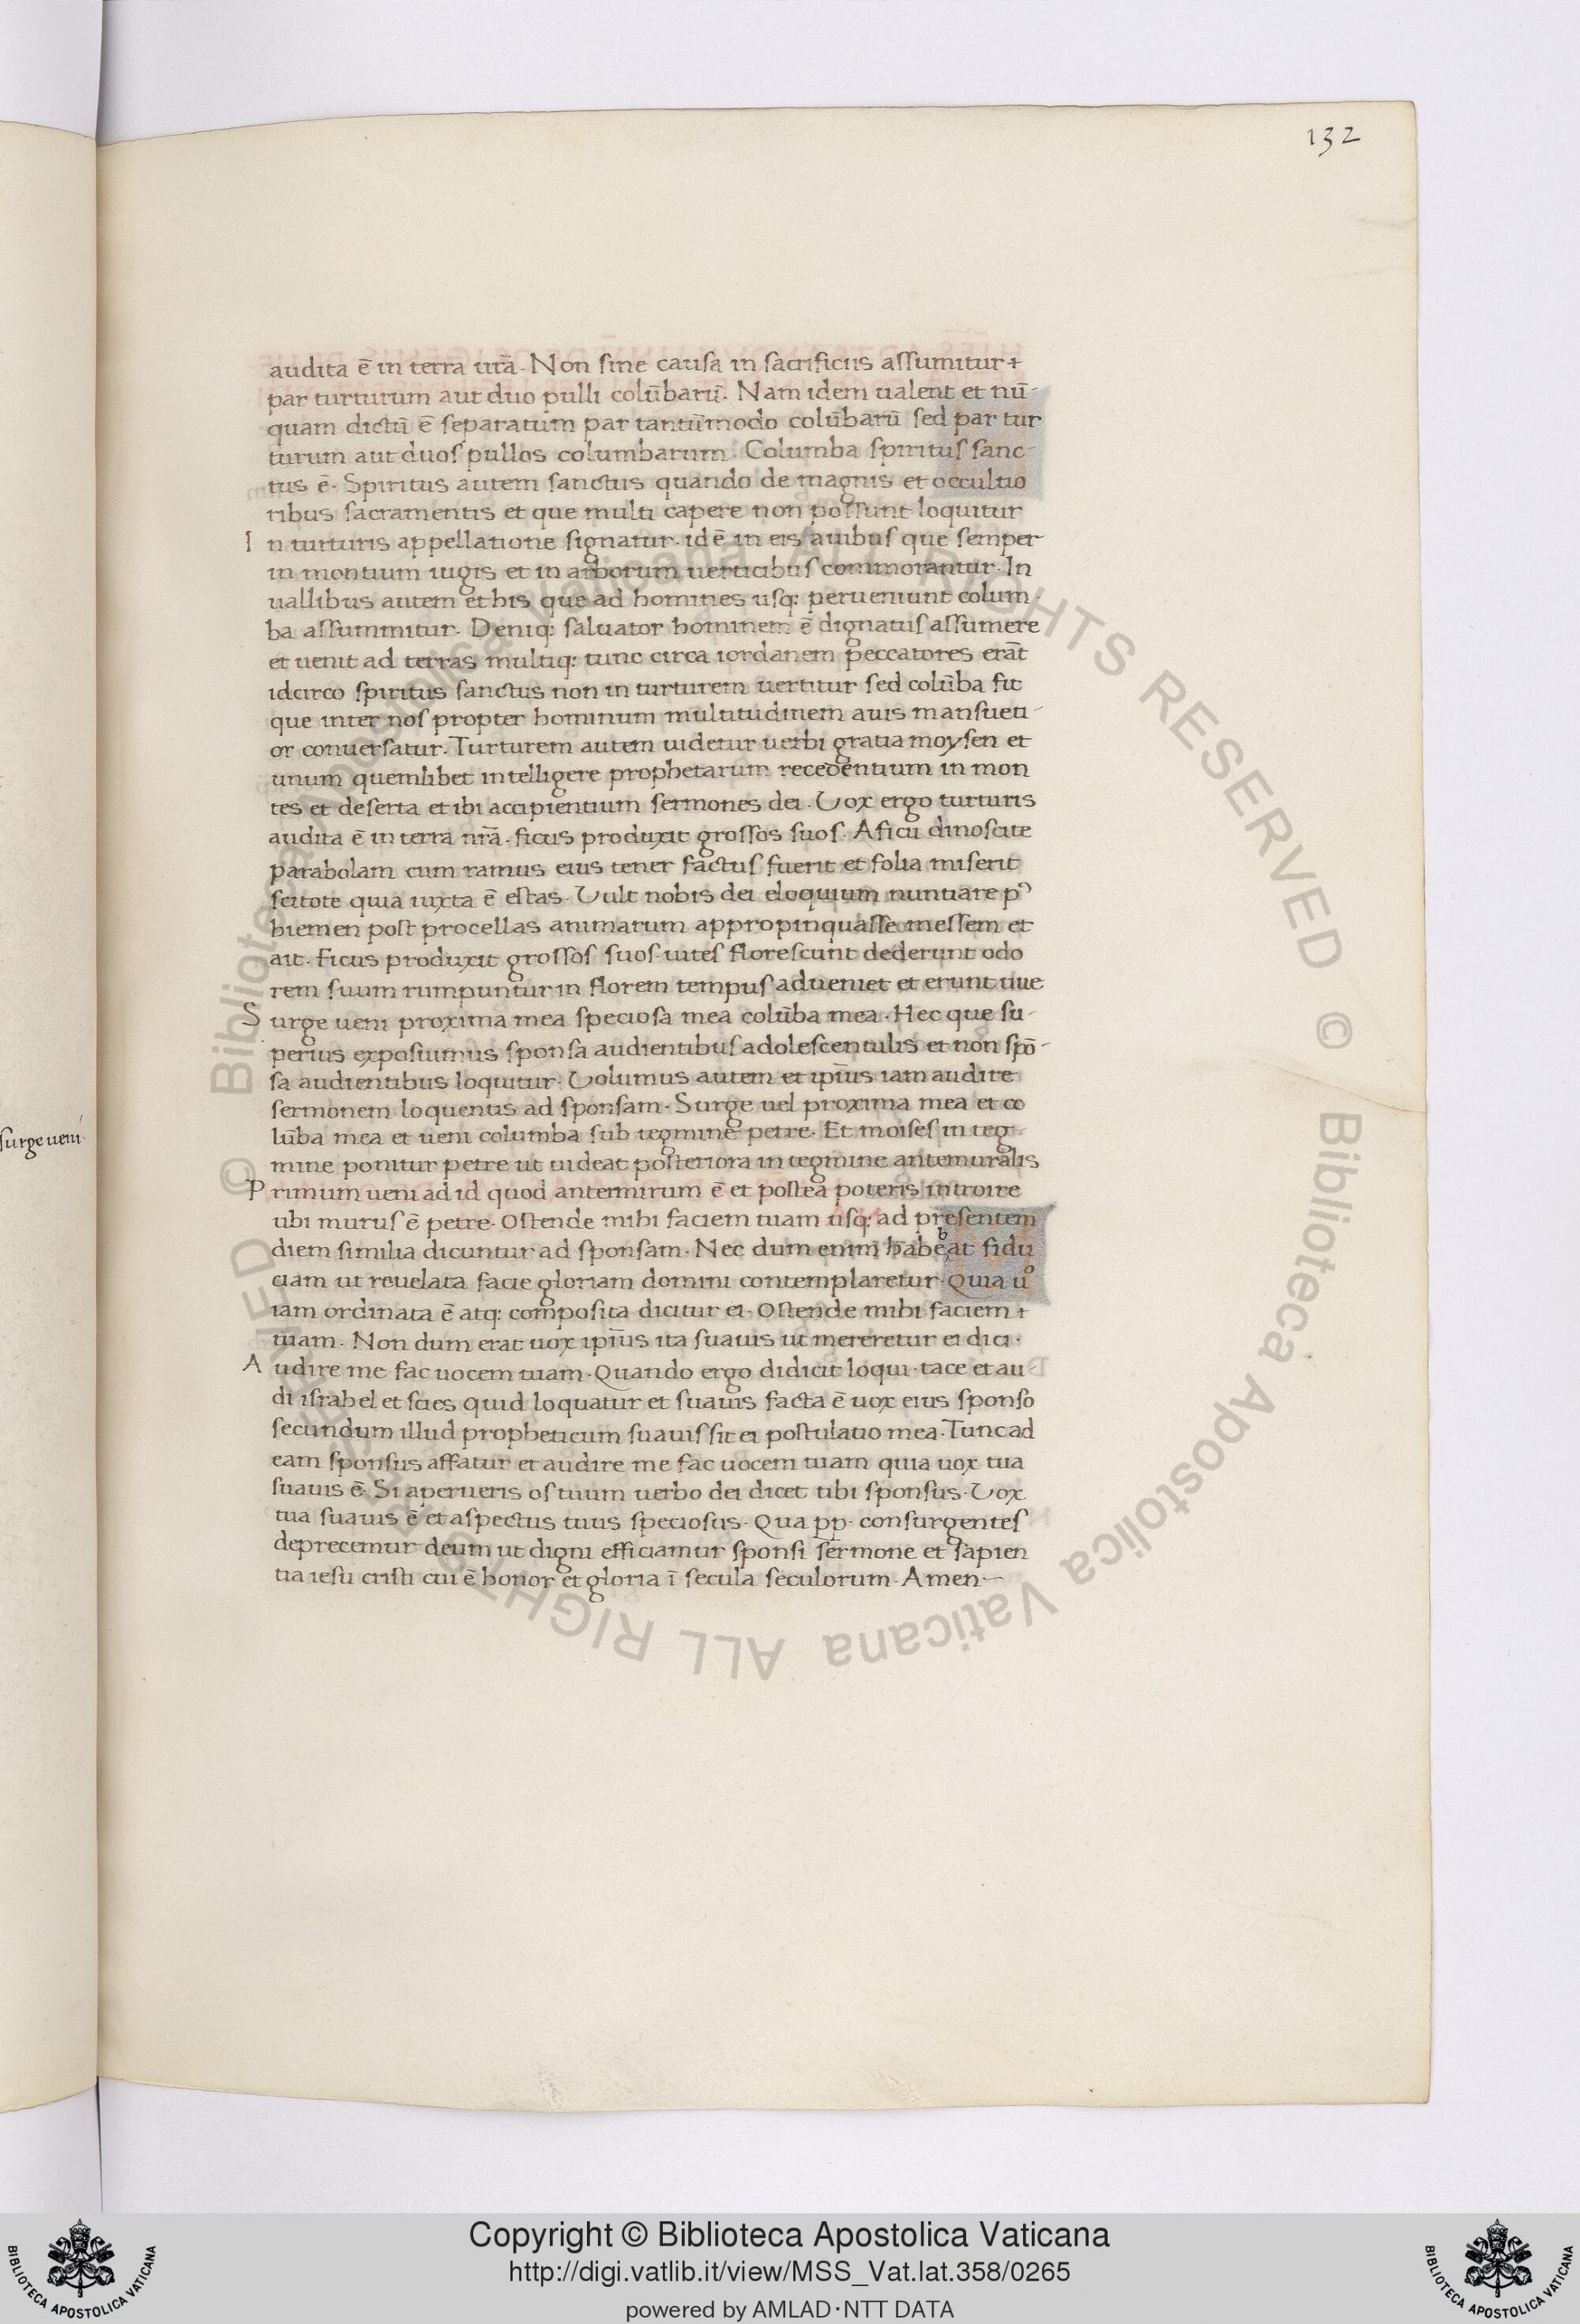 132
audita ē in terra nr̄a. Non sine causa in sacrificiis assumitur
par turturum aut duo pulli colūbarū. Nam idem ualent et nū-
quam dictū ē separatum par tantūmodo colūbarū sed par tur
turum aut duos pullos columbarum. Columba spiritus sanc-
tus ē. Spiritus autem sanctus quando de magnis et occultio
ribus sacramentis et que multi capere non possunt loquitur
In turturis appellatione signatur. id ē in eis auibus que semper
in montium iugis et in arborum uerticibus commorantur. In
uallibus autem et his que ad homines usq: perueniunt colum-
ba assummitur. Deniq: saluator hominem ē dignatus assumere
et uenit ad terras multiq: tunc circa iordanem peccatores erāt
idcirco spiritus sanctus non in turturem uertitur sed colūba fit
que inter nos propter hominum multitudinem auis mansueti-
or conuersatur. Turturem autem uidetur uerbi gratia moysen et
unum quemlibet intelligere prophetarum recedentium in mon
tes et deserta et ibi accipientium sermones dei. Vox ergo turturis
audita ē in terra nr̄a. ficus produxit grossos suos. A ficu dinoscite
parabolam cum ramus eius tener factus fuerit et folia miserit
scitote quia iuxta ē estas. Vult nobis dei eloquium nuntiare pꝰ
hiemen post procellas animarum appropinquasse messem et
ait. Ficus produxit grossos suos. uites florescunt dederunt odo
rem suum rumpuntur in florem tempus adueniet et erunt uue
Surge ueni proxima mea speciosa mea colūba mea. Hec que su-
perius exposuimus sponsa audientibus adolescentulis et non spō-
sa audientibus loquitur. Volumus autem et ip̄ius iam audire
sermonem loquentis ad sponsam. Surge uel proxima mea et co
lūba mea et ueni columba sub tegmine petre. Et moises in teg-
mine ponitur petre ut uideat posteriora in tegmine antemuralis
Primum ueni ad id quod antemirum ē et postea poteris introire
ubi murus ē petre. Ostende mihi faciem tuam usq: ad presentem
diem similia dicuntur ad sponsam. Nec dum enim habebat fidu
ciam ut reuelata facie gloriam domini contemplaretur. Quia uº
iam ordinata ē atq: composita dicitur ei. Ostende mihi faciem
tuam. Non dum erat uox ip̄ius ita suauis ut mereretur ei dici.
Audire me fac uocem tuam. Quando ergo didicit loqui. tace et au
di israhel et scies quid loquatur et suauis facta ē uox eius sponso
secundum illud propheticum suauis sit ei postulatio mea. Tunc ad
eam sponsus affatur et audire me fac uocem tuam quia uox tua
suauis ē. Si aperueris os tuum uerbo dei dicet tibi sponsus. Vox
tua suauis ē et aspectus tuus speciosus. Qua pp. consurgentes
deprecemur deum ut digni efficiamur sponsi sermone et sapien
tia iesu cristi cui ē honor et gloria ī secula seculorum. Amen
surge ueni.
© Biblioteca Apostolica Vaticana ALL RIGHTS RESERVED © Biblioteca Apostolica Vaticana ALL RIGHTS RESERVED
Copyright © Biblioteca Apostolica Vaticana
http://digi.vatlib.it/view/MSS_Vat.lat.358/0265
powered by AMLAD·NTT DATA
BIBLIOTECA APOSTOLICA VATICANA
BIBLIOTECA APOSTOLICA VATICANA